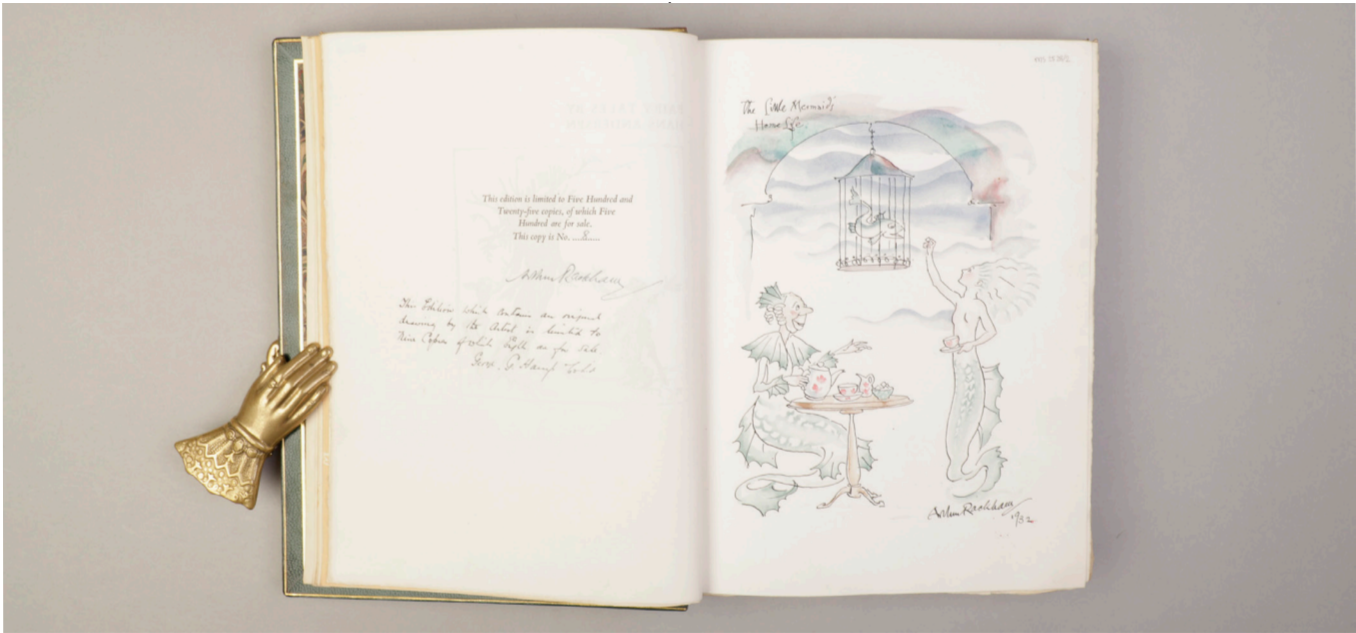 This edition is limited to Five Hundred and
Twenty-five copies, of which Five
Hundred are for sale.
This copy is No. 8
Arthur Rackham
This Edition which contains an original
drawing by the Artist is limited to
Nine Copies of which Eight are for sale
The Little Mermaid's
Home Life.
Arthur Rackham